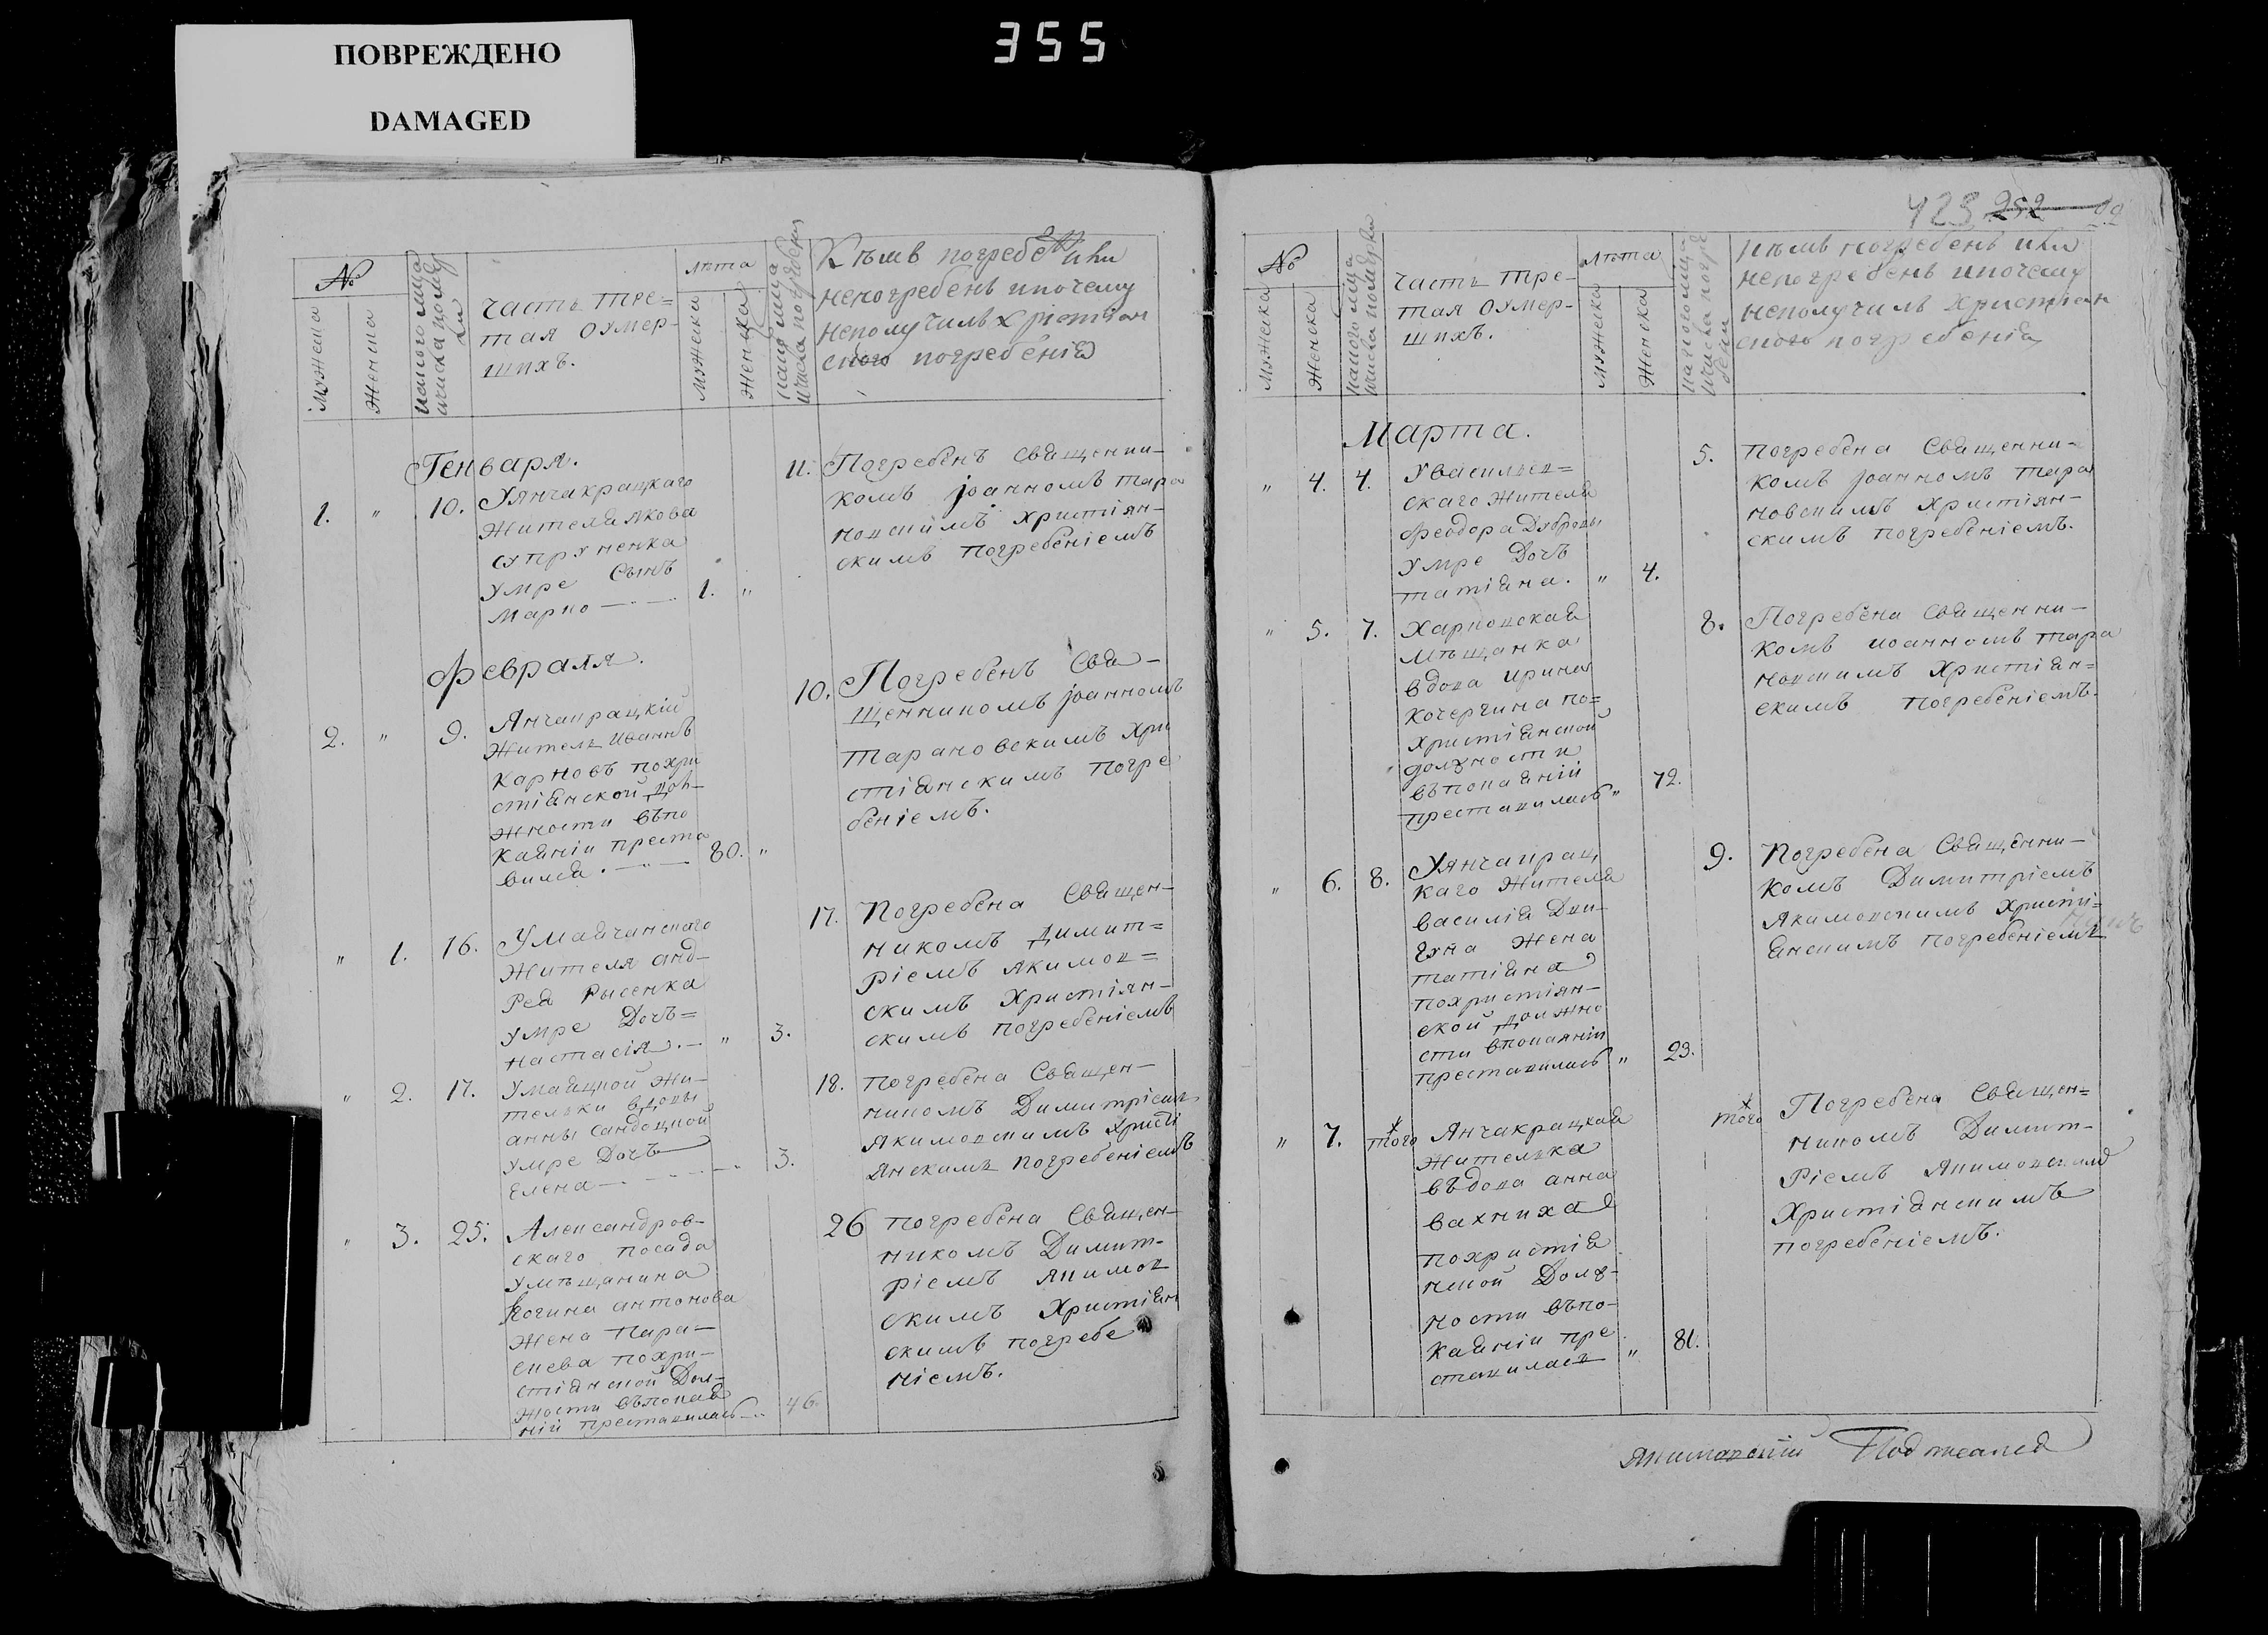 ПОВРЕЖДЕНО
DAMAGED
355
№
мужеска
женска
лѣта
мужеска
женска
часть тре=
тая оумер-
шихъ.
Кѣмъ погребенъ или
непогребенъ ипочему
неполучилъ хрістіан
ского погребенія
Генваря.
1. " 10. Уянчакрацкаго
жителя якова
супруненка
умре сынъ
Марко 1. "
11. Погребенъ священни-
комъ јоанномъ тара
новскимъ христіян-
скимъ погребеніемъ
Февраля.
2. " 9. Янчакрацкій
житель Иваннъ
карновъ похри
стіянской дол-
жности въпо
каяніи преста
вилса. 80. "
10. Погребенъ Свя-
щенникомъ јоанномъ
тарановскимъ хри
стіянскимъ погре
беніемъ.
" 1. 16. Умаячанского
жителя анд-
рея Рысенка
умре Дочъ=
настасія. " 3.
17. Погребена Священ-
никомъ димит=
ріемъ якимов=
скимъ христіян-
скимъ погребеніемъ
" 2. 17. Умаяцкой жи-
тельки вдовы
анны
умре Дочъ
Елена 3.
18. погребена Священ-
никомъ Димитріемъ
Якимовскимъ христі
янскимъ погребеніемъ
" 3. 25. Александров-
скаго посада
умѣщанина
антонова
жена пара-
скева похри-
стіянской Дол-
жности въпокая
ніи преставилась 46.
26 погребена Священ-
никомъ Димит-
ріемъ якимов
скимъ христіян
скимъ погребе
ніемъ.
423 252
№
мужеска
женска
лѣта
мужеска
женска
часть тре-
тая оумер-
шихъ.
Кѣмъ погребенъ или
непогребенъ ипочему
неполучилъ христіан
ского погребенія
Марта.
" 4. 4. Увасильев=
скаго жителя
феодора Дубровы
умре Дочъ
татіяна. " 4.
5. погребена Священни-
комъ јоанномъ тара
новскимъ христіян-
скимъ погребеніемъ.
" 5. 7. Харковская
мѣщанка
вдова ирина
кочергина по=
христіянской
должности
въпокаяніи
преставилась " 72.
8. Погребена Священни-
комъ иоанномъ тара
новскимъ христіян=
скимъ погребеніемъ.
" 6. 8. Уянчакрац
каго жителя
василія
жена
татіяна
похристіян-
ской должно
сти впокаяніи
преставилась " 23.
9. Погребена Священни-
комъ Димитріемъ
Якимовскимъ христі=
янскимъ погребеніемъ
" 7. того Янчакрацкая
жителька
въдова анна
вахниха
похристія
нской Долж-
ности въпо-
каяніи пре
ставилась " 81.
того Погребена Священ=
никомъ Димит-
ріемъ Якимовскимъ
христіянскимъ
погребеніемъ.
Якимовскій